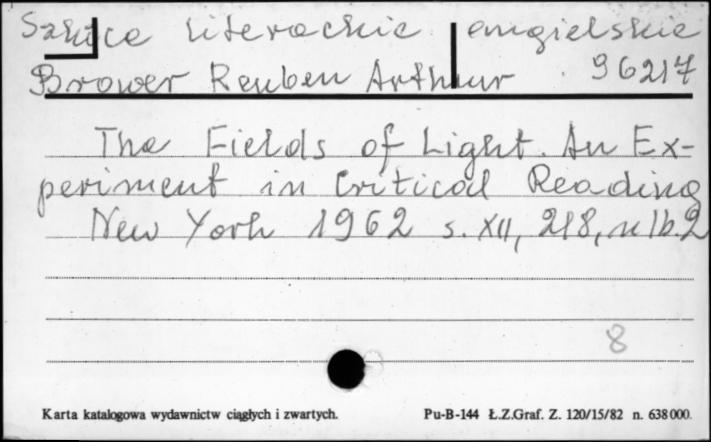 Szkice literackie angielskie
Brower Reuben Arthur 96217
The Fields of Light. An Ex-
periment in Critical Reading
New York 1962 s. XII, 218, nlb. 2
8
Karta katalogowa wydawnictw ciągłych i zwartych. Pu-B-144 Ł.Z.Graf. Z. 120/15/82 n. 638 000.